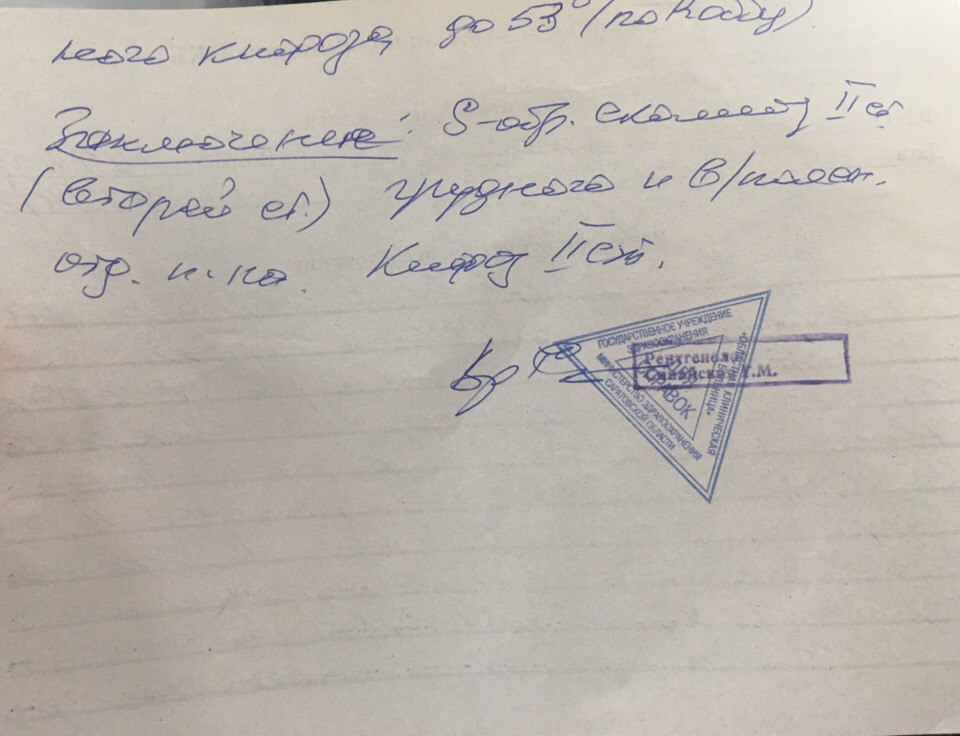 ного кифоза до 53° (по Коббу)
Заключение: S-обр. сколиоз II ст
(второй ст.) грудного и в/поясн.
отд. п-ка. Кифоз II ст.
Вр
ГОСУДАРСТВЕННОЕ УЧРЕЖДЕНИЕ
ЗДРАВООХРАНЕНИЯ
«ОБЛАСТНАЯ КЛИНИЧЕСКАЯ
БОЛЬНИЦА»
МИНИСТЕРСТВО ЗДРАВООХРАНЕНИЯ
САРАТОВСКОЙ ОБЛАСТИ
СПРАВОК
Рентгенолог
Т.М.